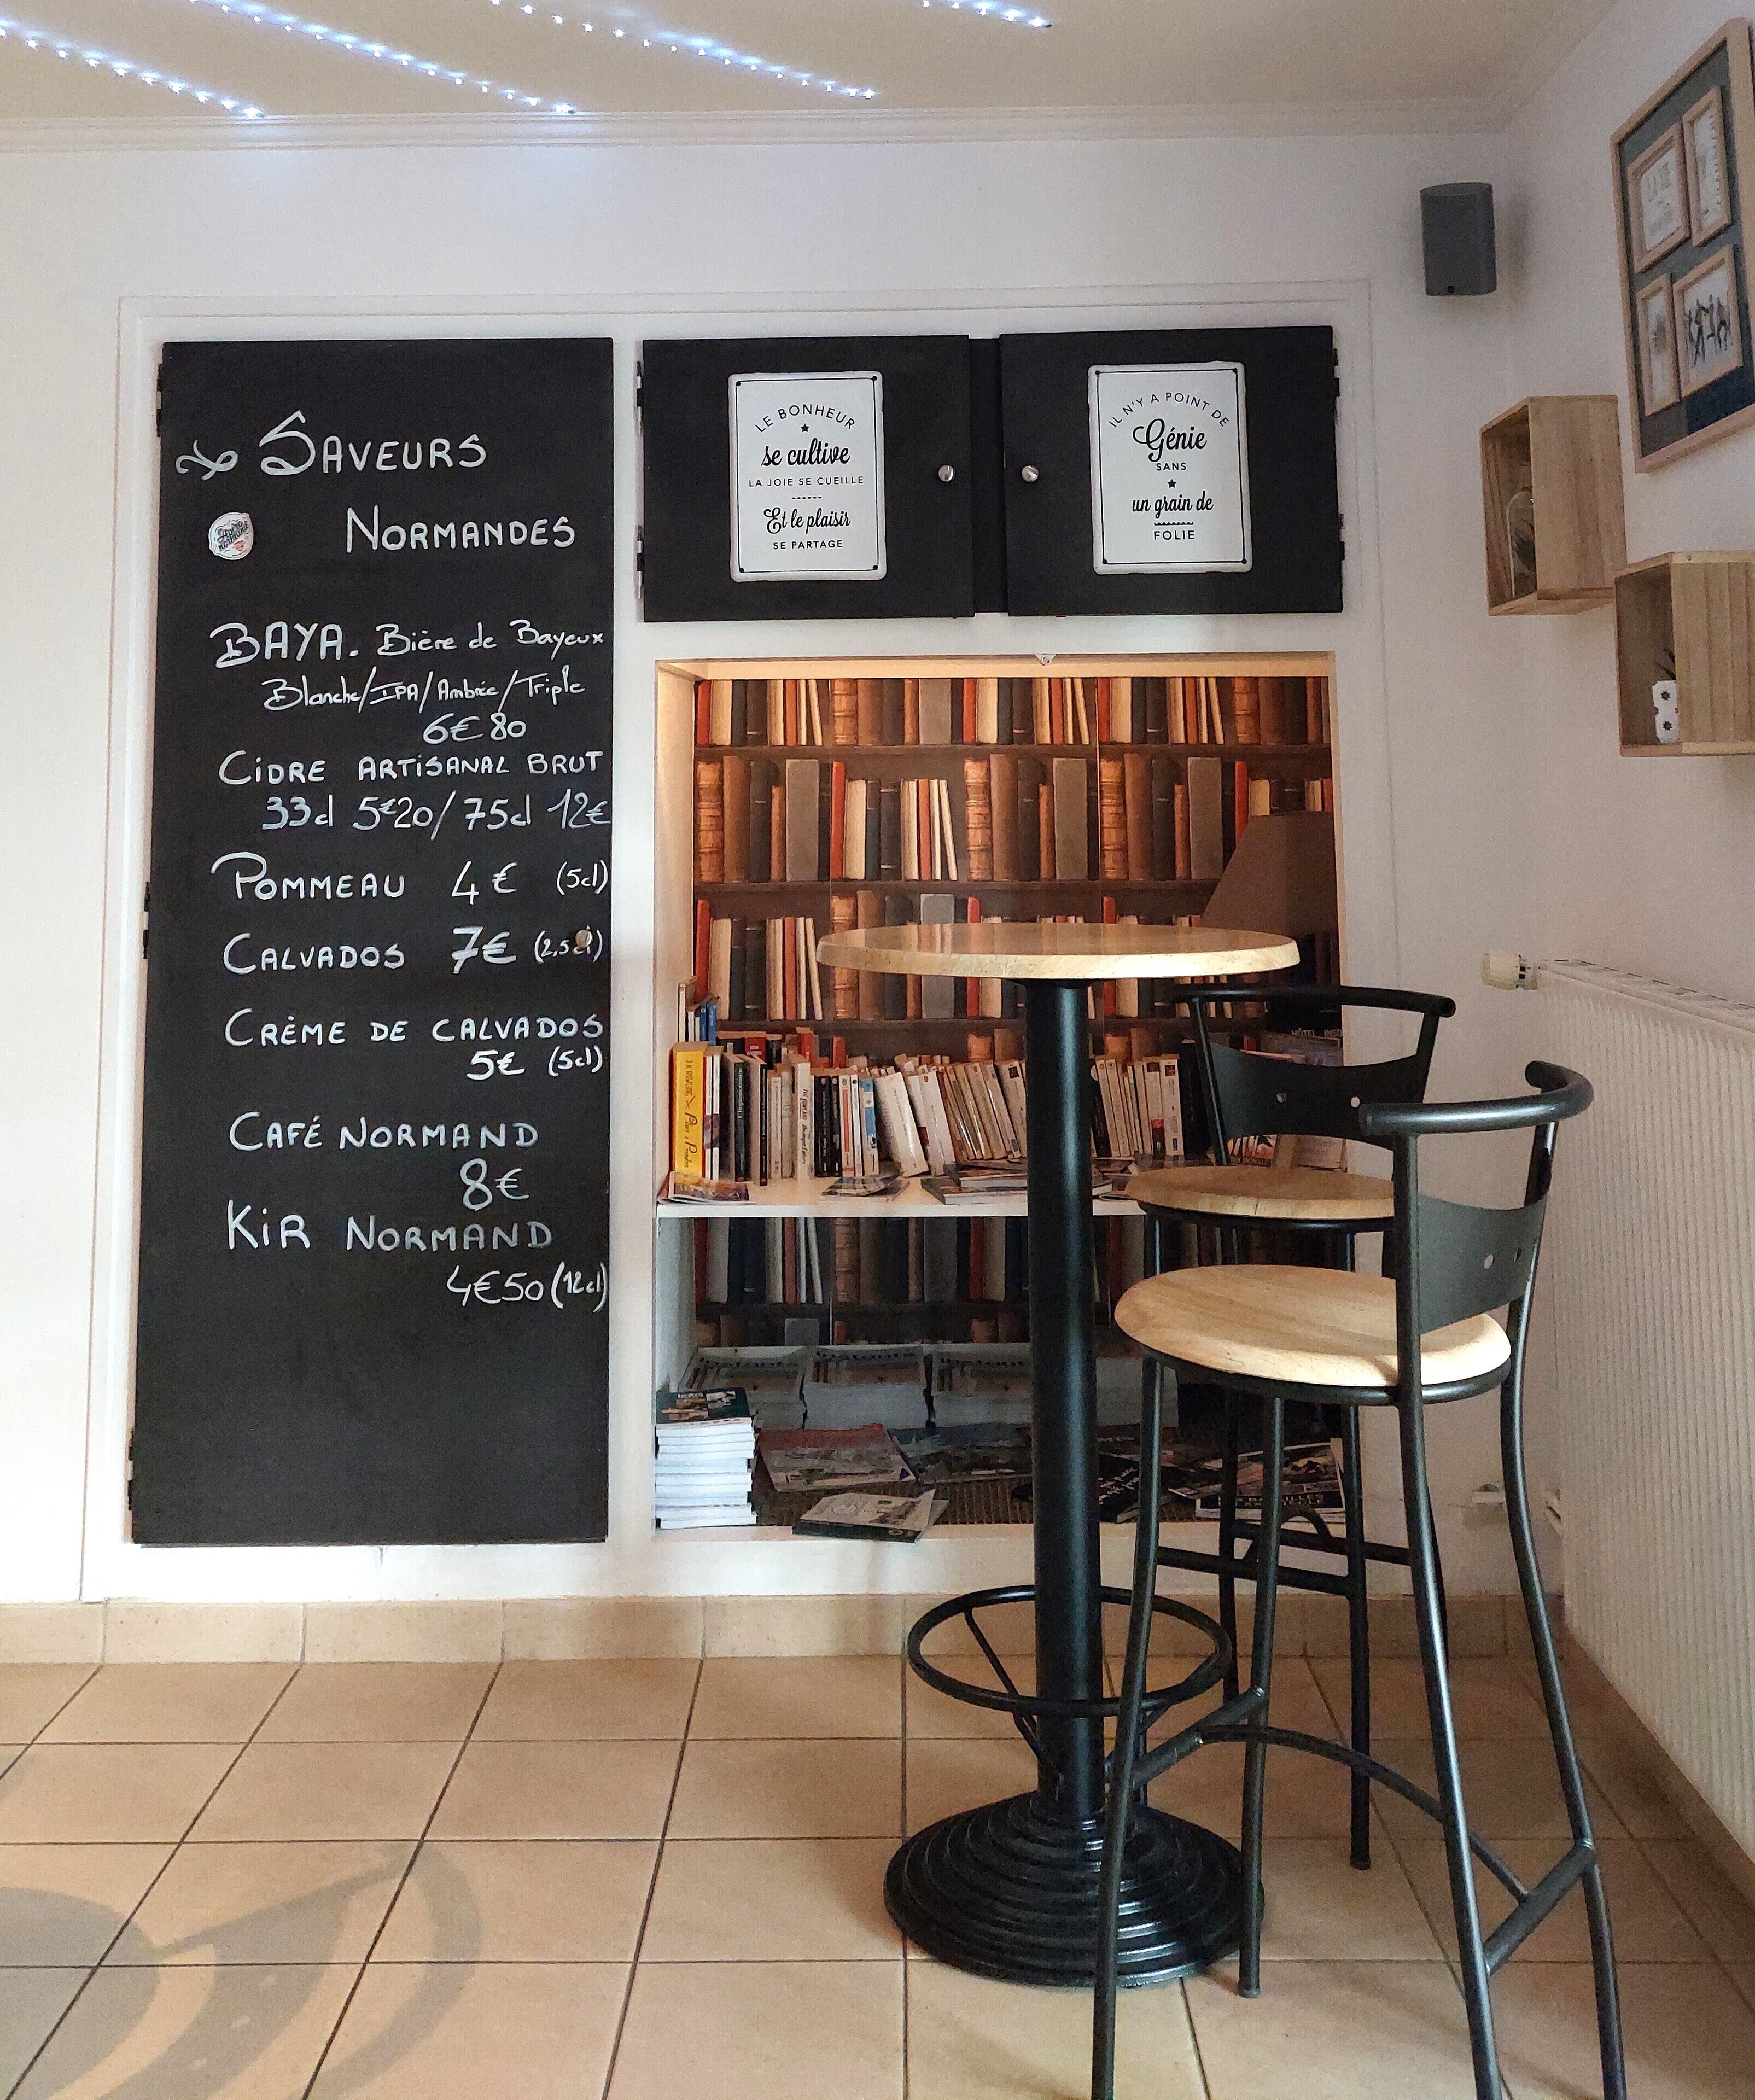 SAVEURS
NORMANDES
BAYA. Bière de Bayeux
Blanche/IPA/Ambrée/Triple
6€80
CiDRE ARTiSANAL BRUT
33cl 5€20/75cl 12€
POMMEAU 4€ (5cl)
CALVADOS 7€ (2,5cl)
CRÈME DE CALVADOS
5€ (5cl)
CAFÉ NORMAND
8€
KiR NORMAND
4€50 (12cl)
LE BONHEUR
se cultive
LA JOIE SE CUEILLE
Et le plaisir
SE PARTAGE
IL N'Y A POINT DE
Génie
SANS
un grain de
FOLIE
LA VIE
HÔTEL